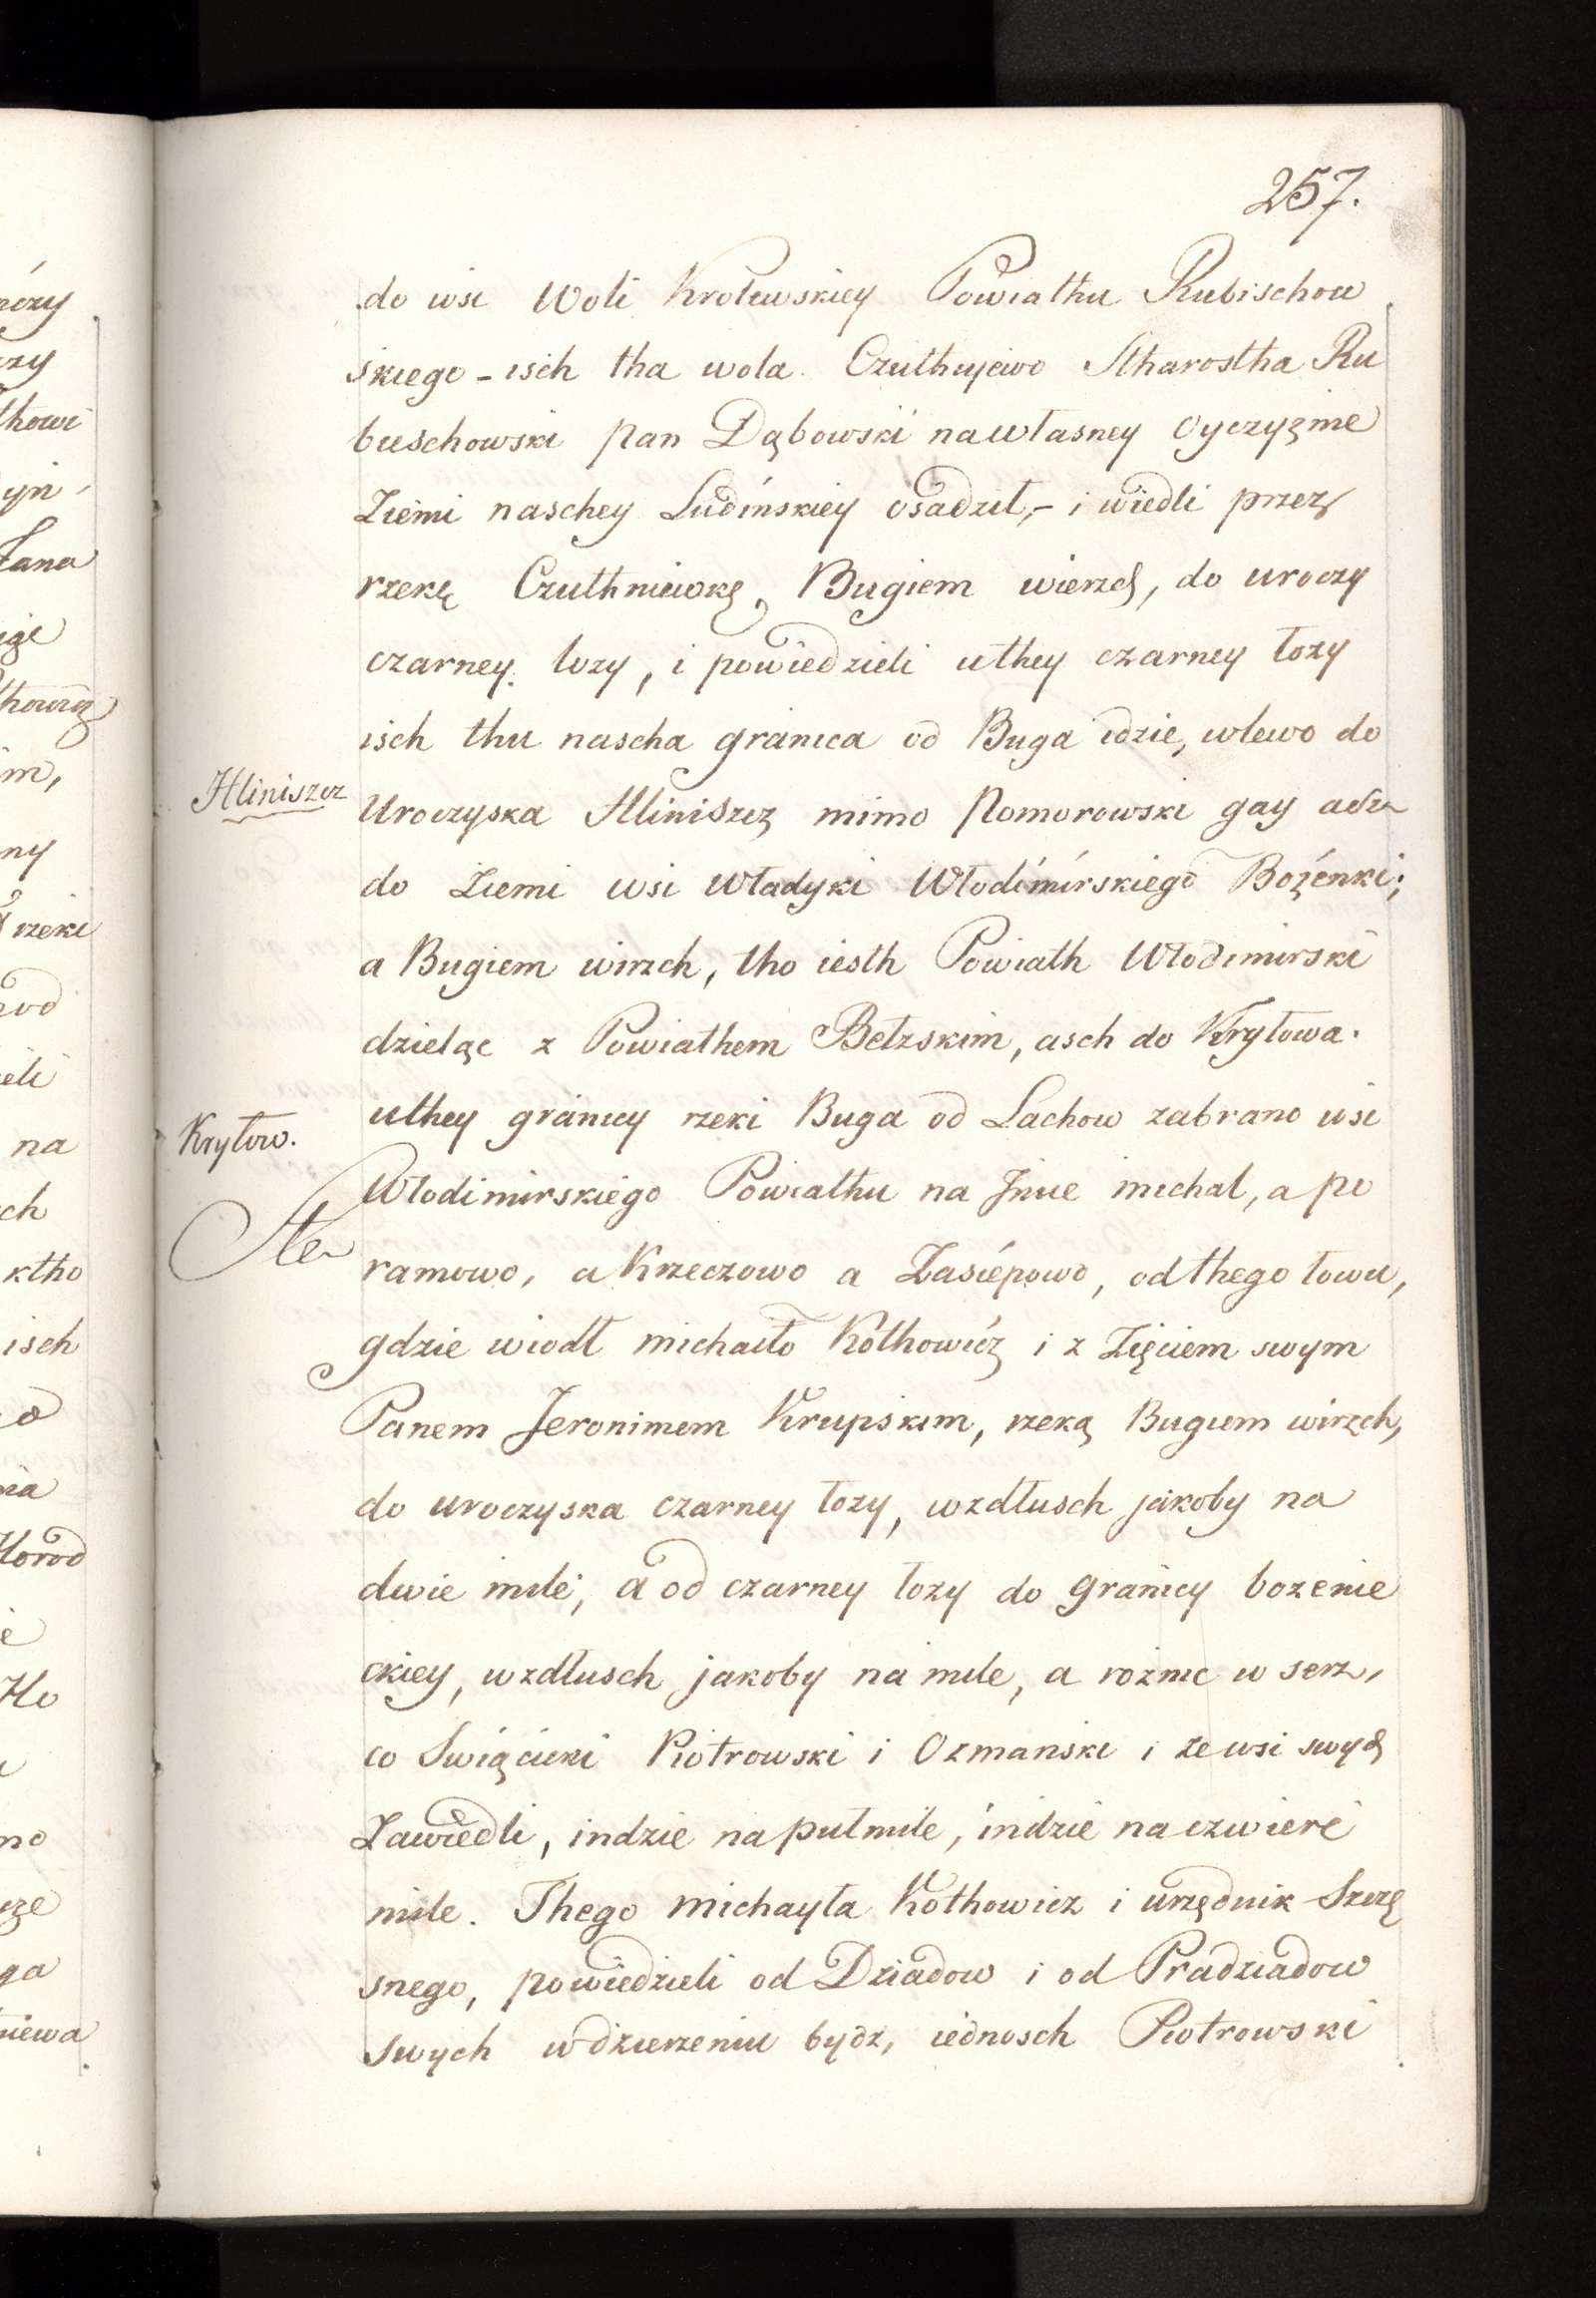 257.
do wsi Woli Krolewskiey Powiathu Rubischow
skiego - isch tha wola Czuthnjewo Stharostha Ru
bieschowski pan Dąbowski na własney oyczyznie
Ziemi naschey Ludińskiey osadził, - i wiedli przez
rzekę Czuthniewkę, Bugiem wierzch, do uroczy
czarney lozy, i powiedzieli u they czarney łozy
isch thu nascha granica od Buga idzie, wlewo do
Hliniszcz
Uroczyska Hliniszcz mimo Pomorowski gay asz
do Ziemi wsi Władyki Włodimírskiego Bożénki;
a Bugiem wirzch, tho iesth Powiath Włodimirski
dzieląc z Powiathem Bełzskim, asch do Kryłowa.
Kryłow.
u they granicy rzeki Buga od Lachow zabrano wsi
Włodimirskiego Powiathu na Jmie michał, a po
ramowo, a Krzeczowo a Zasiépowo, od thego łowu,
gdzie wiodł michaiło Kothowicz i z Zięciem swym
Panem Jeronimem Krupskim, rzeką Bugiem wirzch,
do uroczyska czarney łozy, wzdłusch jakoby na
dwie mili, a od czarney łozy do granicy bozenie
ckiey, wzdłusch jakoby na mile, a roznie w serz,
co Swięcicki Piotrowski i Ozmanski i ze wsi swych
Zawiedli, indzie na puł mile, indzie na czwierć
mile. Thego michayła Kothowicz i urzędnik Szczę
snego, powiedzieli od Dziadow i od Pradziadow
swych w dzierzeniu bydz, iednosch Piotrowski